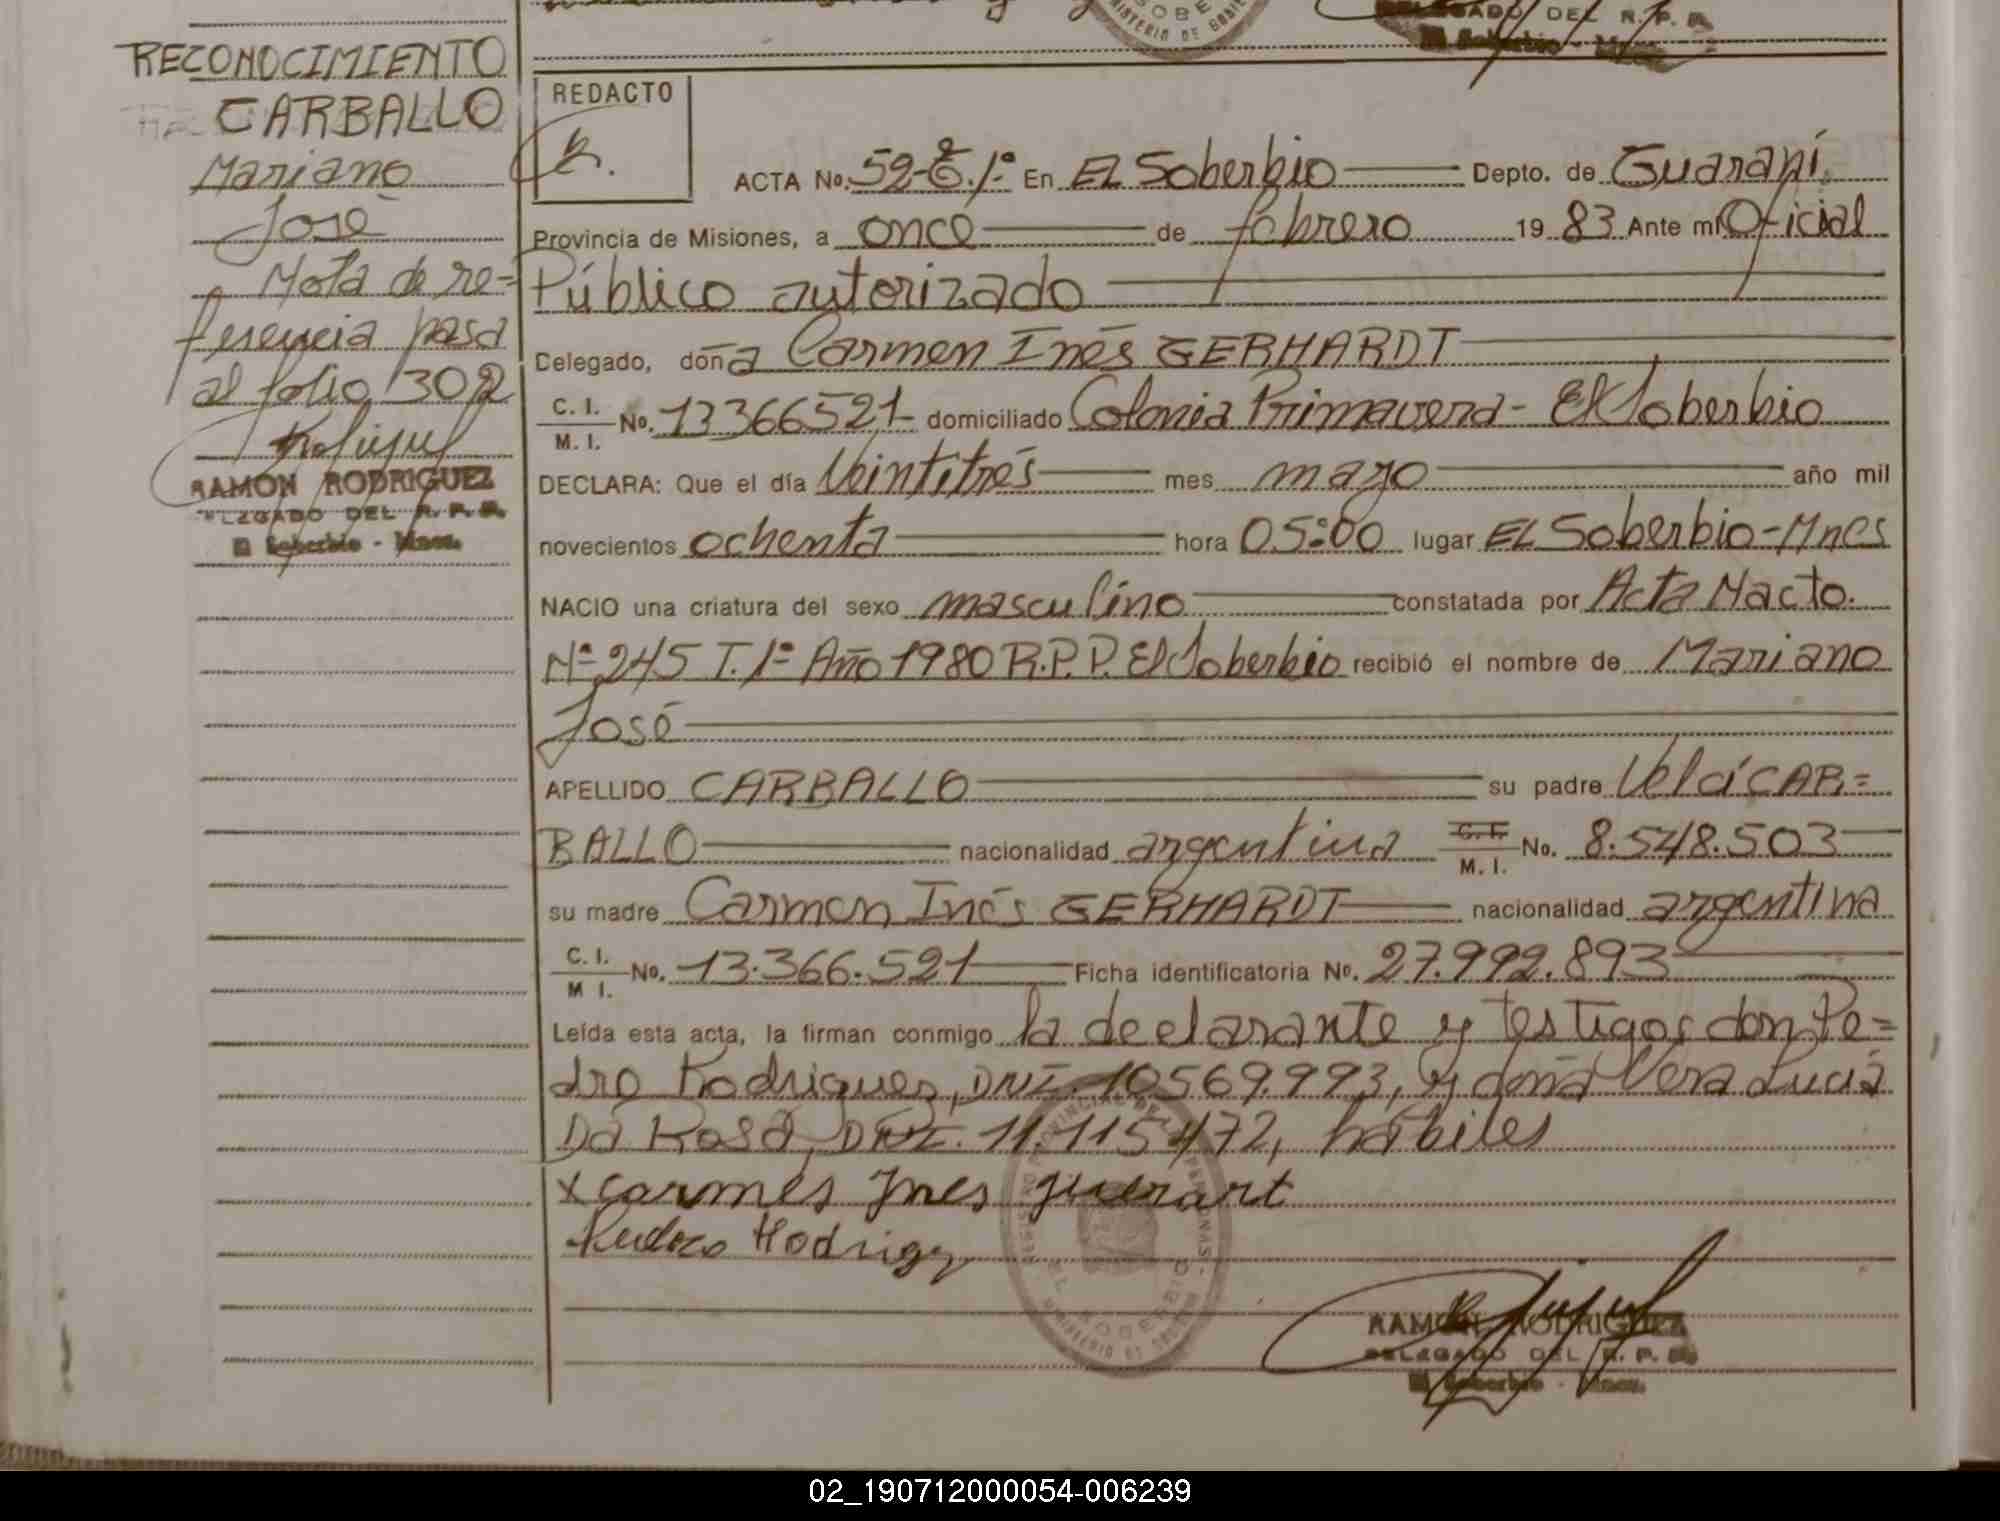 DELEGADO DEL R. P. P.
El Soberbio - Mnes.
RECONOCIMIENTO
CARBALLO
Mariano
José
Nota de re=
ferencia pasa
al folio 302
RAMON RODRIGUEZ
DELEGADO DEL R. P. P.
El Soberbio - Mnes.
REDACTO
ACTA No. 52- T. 1º En EL Soberbio Depto. de Guaraní.
Provincia de Misiones, a once de febrero 19 83 Ante mí Oficial
Público autorizado
Delegado, doña Carmen Inés GERHARDT
C. I. / M. I. No. 13366521 domiciliado Colonia Primavera - El Soberbio
DECLARA: Que el día Veintitrés mes mayo año mil
novecientos ochenta hora 05:00 lugar EL Soberbio-Mnes
NACIO una criatura del sexo masculino constatada por Acta Nacto.
Nº 245 T. 1º Año 1980 R.P.P. El Soberbio recibió el nombre de Mariano
José
APELLIDO CARBALLO su padre Velcí CAR=
BALLO nacionalidad argentina C. I. / M. I. No. 8.548.503
su madre Carmen Inés GERHARDT nacionalidad argentina
C. I. / M I. No. 13.366.521 Ficha identificatoria No. 27.992.893
Leída esta acta, la firman conmigo la declarante y testigos don Pe=
dro Rodrigues, DNI. 10569.993, y doña Vera Lucia
Da Rosa, DNI. 11.115472, hábiles
x carmes Ines guerart
Pedro Rodrigz
RAMON RODRIGUEZ
DELEGADO DEL R. P. P.
El Soberbio - Mnes.
02_190712000054-006239